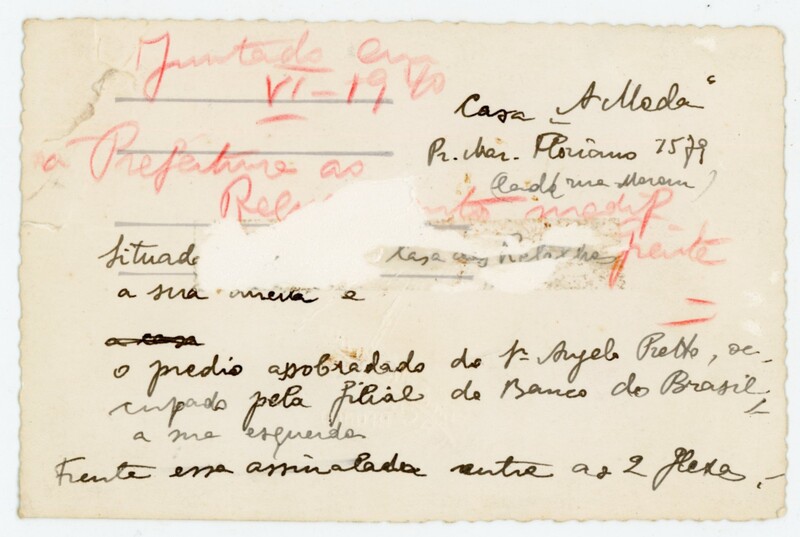 Juntado em
VI-1940
Casa "A Moda"
Pr. Mar. Floriano 1579
à Prefeitura ao
frente
Situada
a sua direita e
a casa
o predio assobradado do Sr. Angelo Pretto, oc-
cupado pela filial do Banco do Brasil,
a sua esquerda
Frente essa assinalada entre as 2 flexas.-